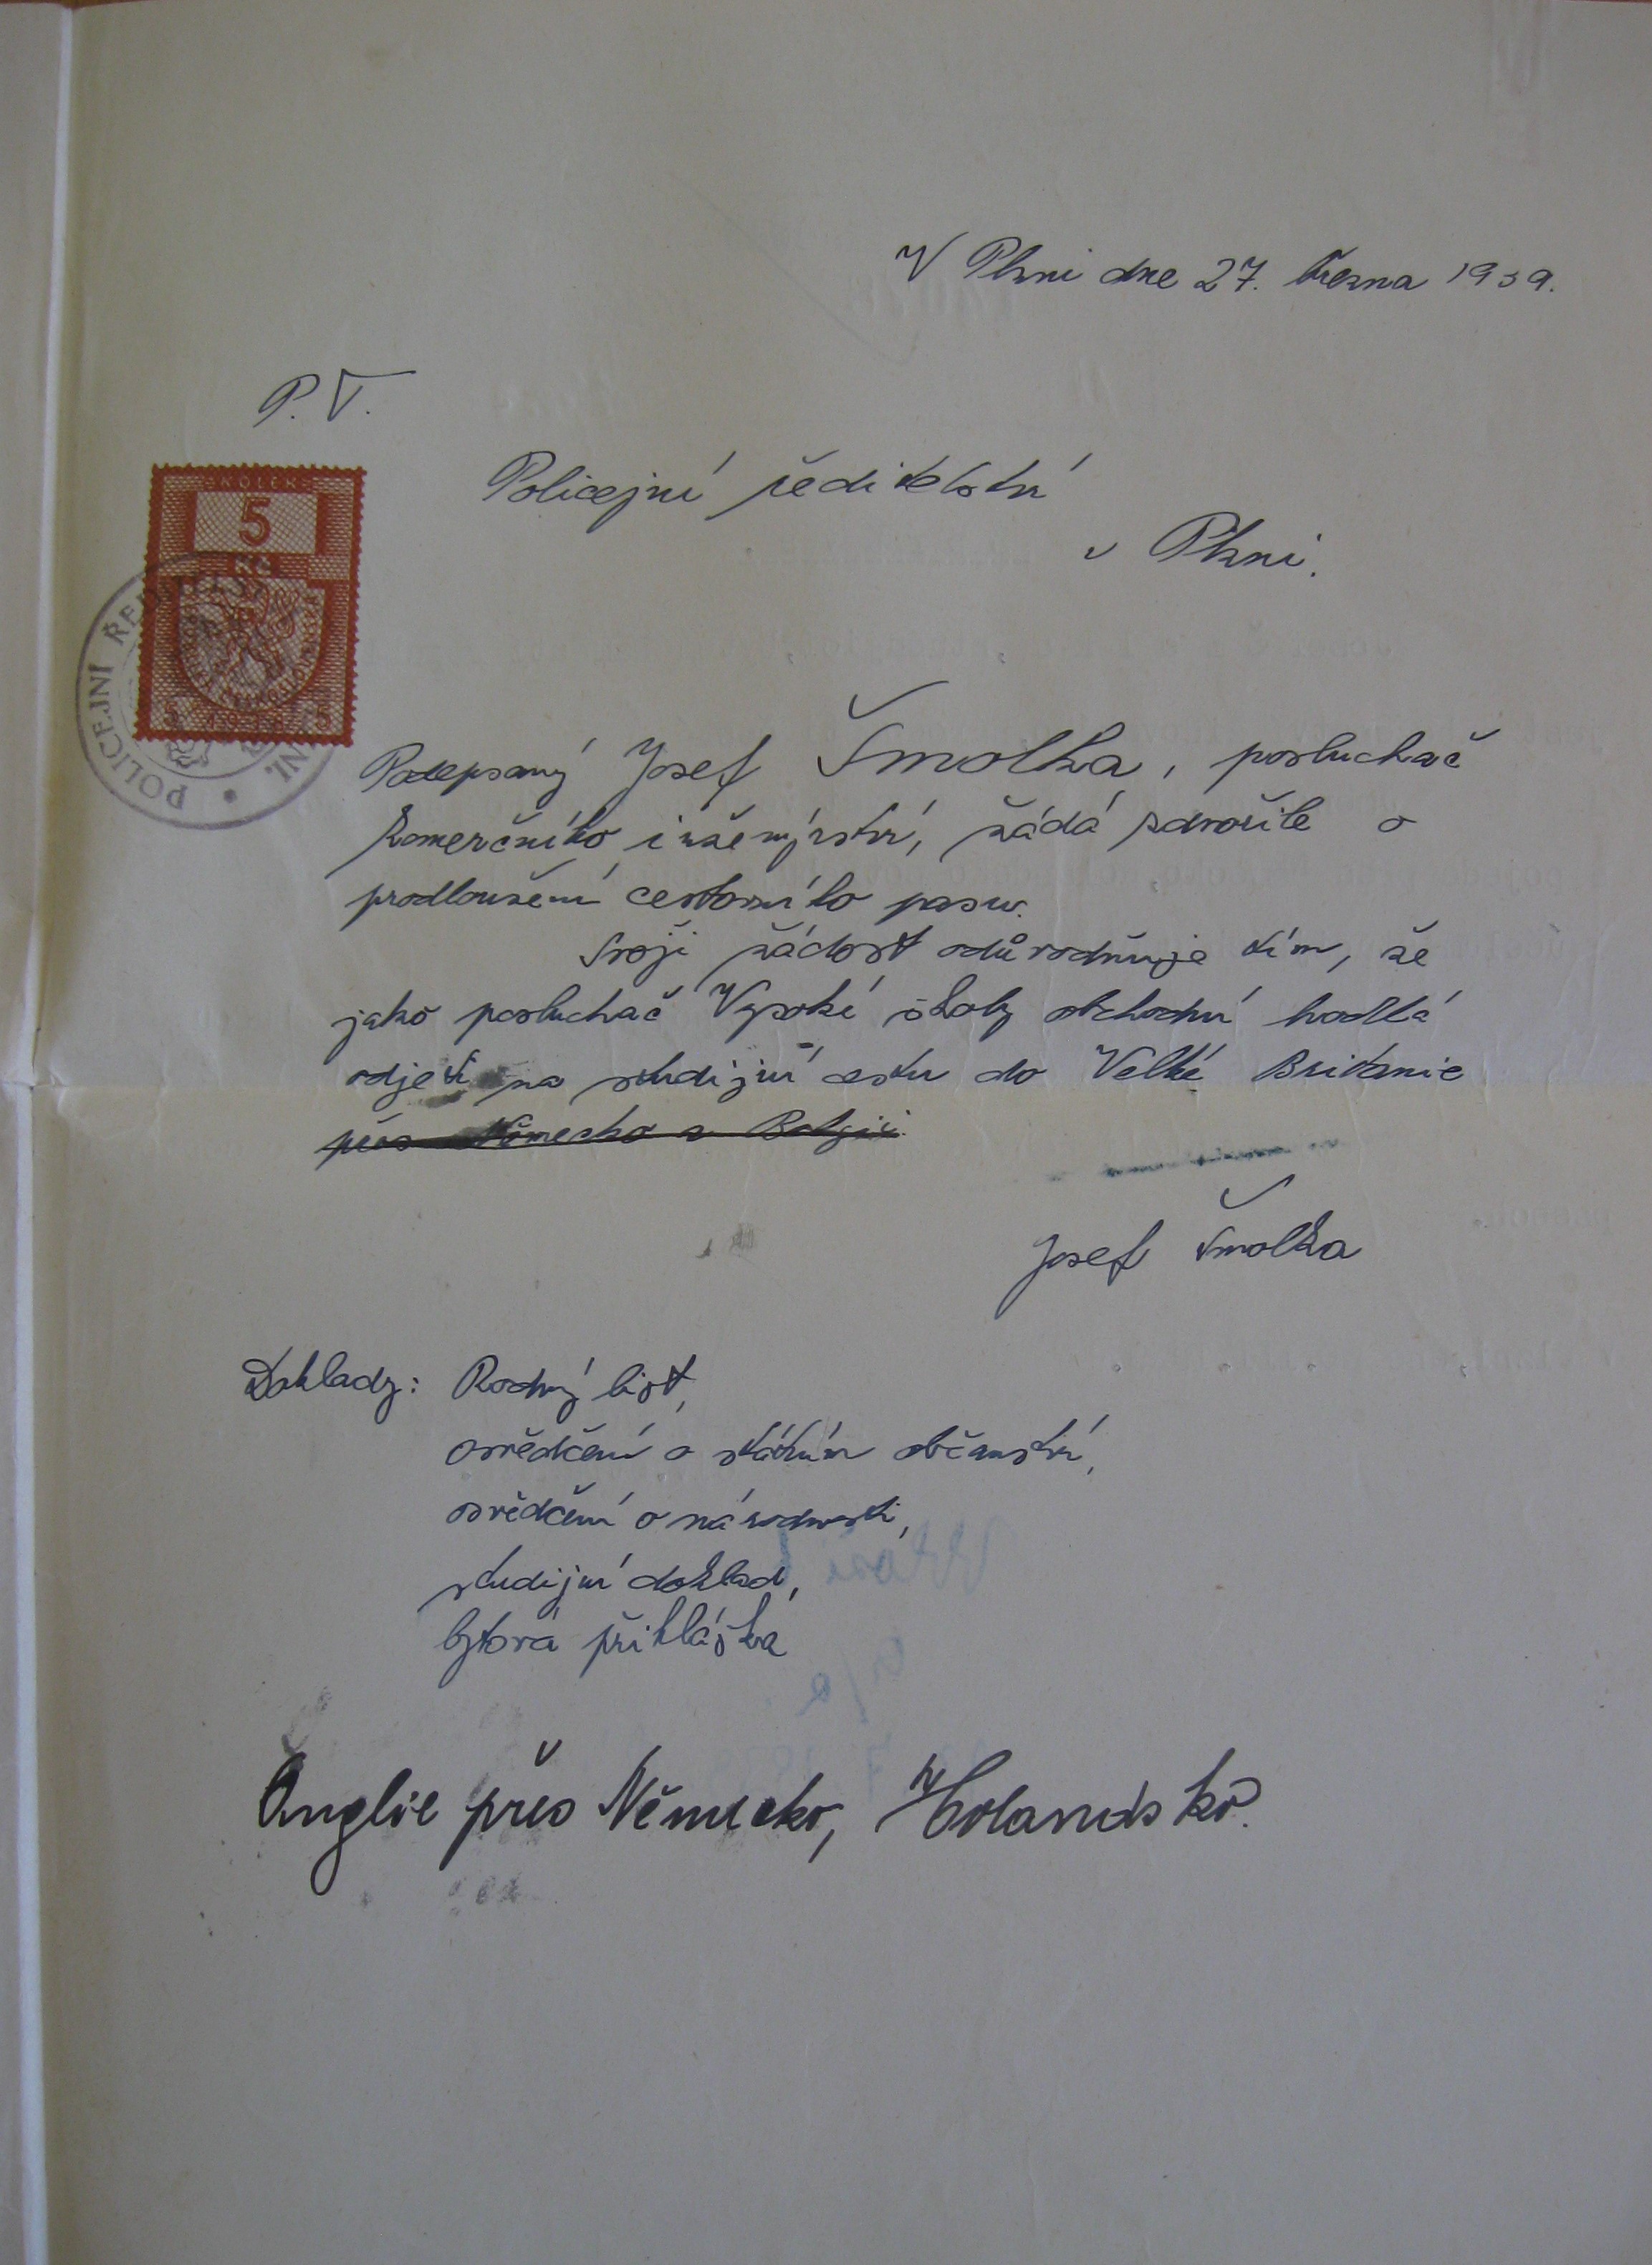 V Plzni dne 27. března 1939.
P.T.
Policejní ředitelství
v Plzni.
KOLEK
5
Kč
5 1938 5
POLICEJNÍ ŘED
NI.
Podepsaný Josef Šmolka, posluchač
komerčního inženýrství, žádá zdvořile o
prodloužení cestovního pasu.
Svoji žádost odůvodňuje tím, že
jako posluchač Vysoké školy obchodní hodlá
odjeti na studijní cestu do Velké Britanie
přes Německo a Belgii.
Josef Šmolka
Doklady: Rodný list,
osvědčení o státním občanství,
osvědčení o národnosti,
studijní doklad,
bytová přihláška
Anglie přes Německo, Holandsko.